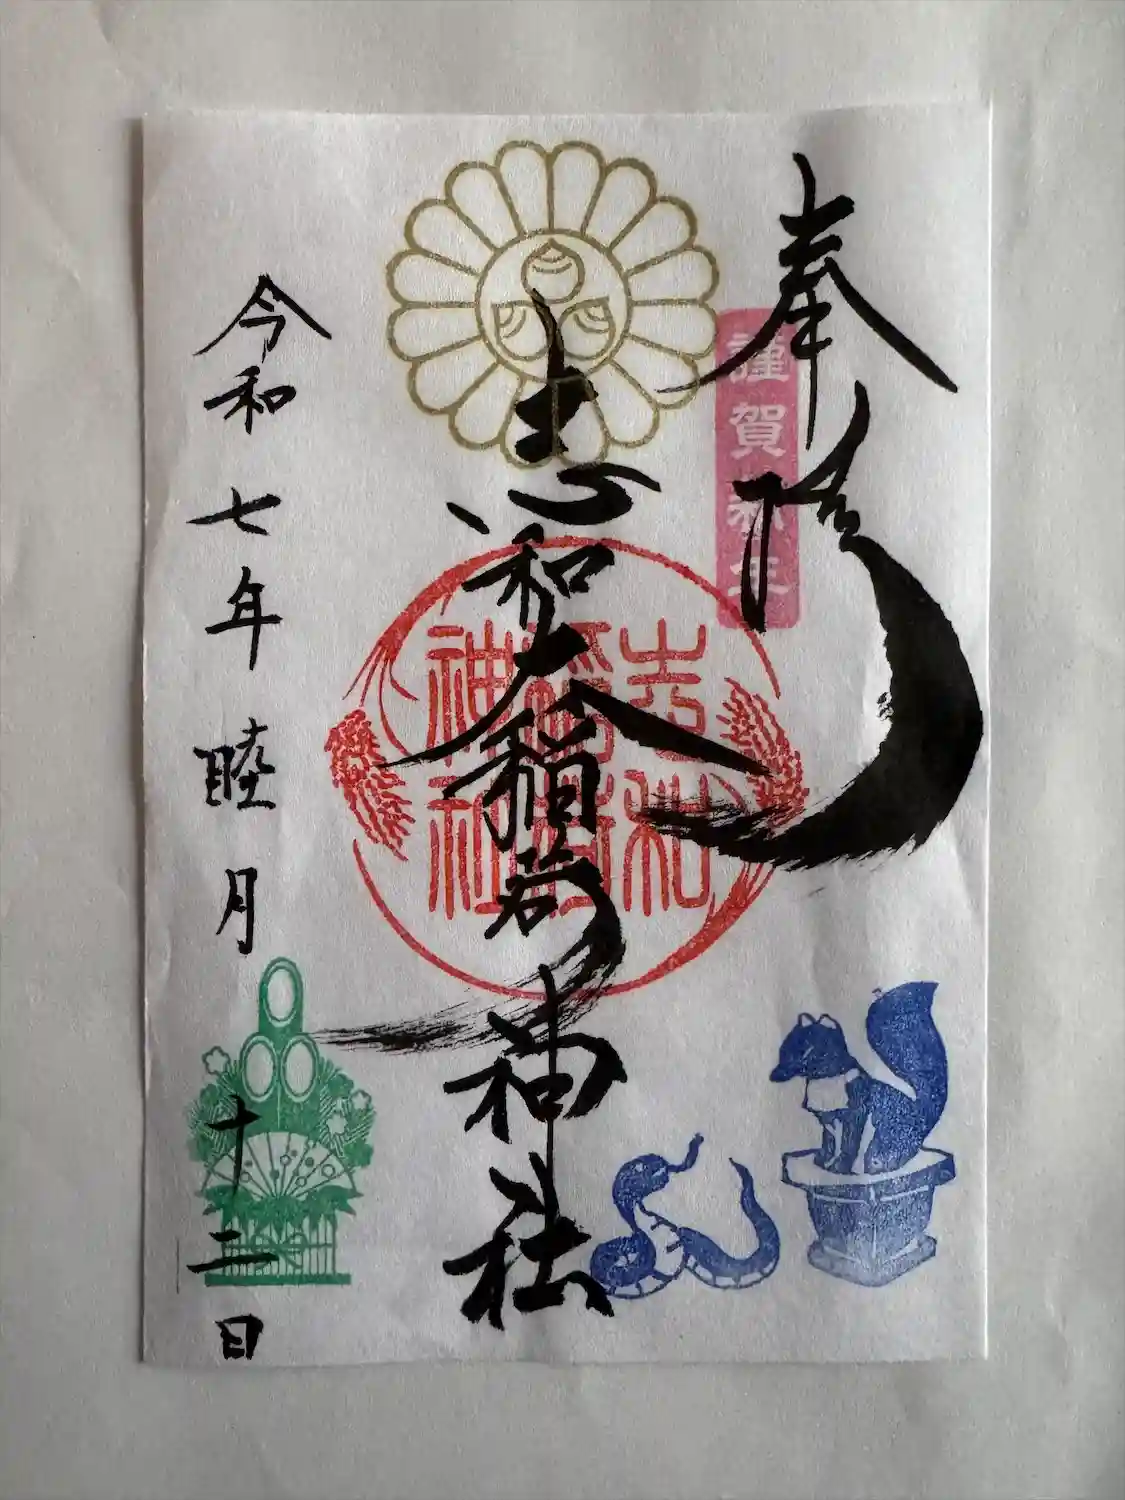 奉拝
謹賀新年
志和大稲荷神社
志和
稲荷
神社
令和七年睦月十二日